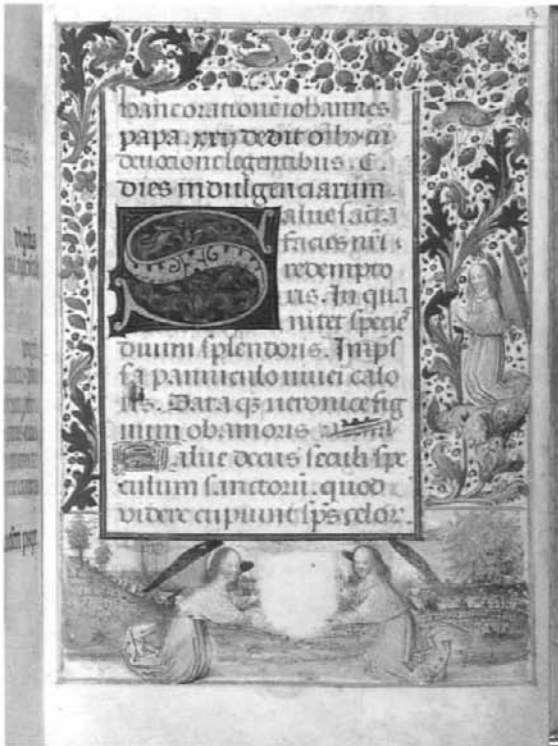 hanc orationē iohannes
papa. xxij dedit oībꝫ cū
deuocione legentibus. C.
dies indulgenciarum
Salue sācta
facies nr̄i
redempto
ris. In qua
nitet specie
diuini splendoris. Imp̄s
sa panniculo niuei calo
ris. Data qꝫ ueronice sig
num ob amoris
Salue decus seculi spe
culum sanctorū. quod
videre cupiunt sp̄s celor